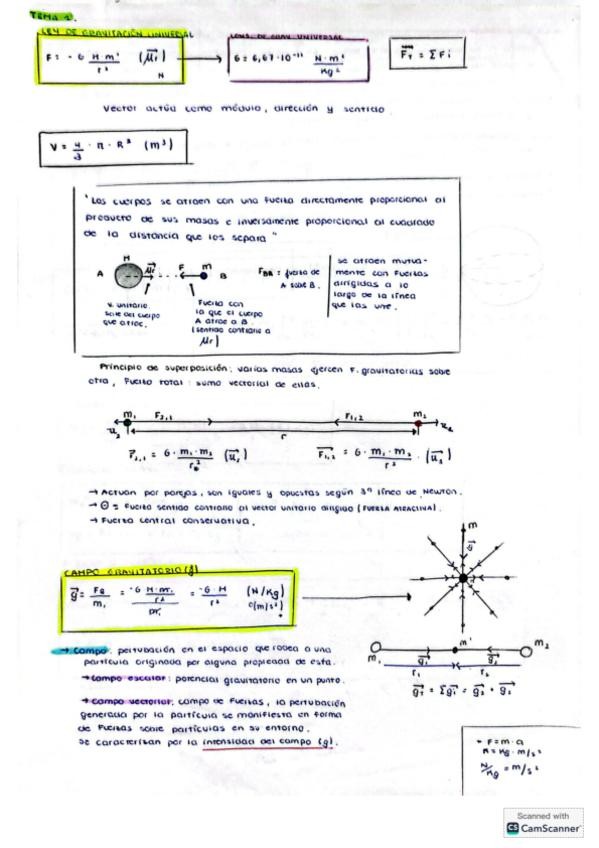 TEMA 1.
LEY DE GRAVITACIÓN UNIVERSAL
F = - G M·m' / r² (μr) N
CONS. DE GRAV UNIVERSAL
G = 6,67·10⁻¹¹ N·m² / kg²
FT = ΣFi
Vector actúa como módulo, dirección y sentido
V = 4/3 · π · R³ (m³)
"Los cuerpos se atraen con una fuerza directamente proporcional al
producto de sus masas e inversamente proporcional al cuadrado
de la distancia que los separa"
M
A μr F m B
V. unitario.
sale del cuerpo
que atrae.
Fuerza con
la que el cuerpo
A atrae a B.
(sentido contrario a
μr)
FBA = fuerza de
A sobre B.
se atraen mutua-
mente con fuerzas
dirigidas a lo
largo de la línea
que las une.
Principio de superposición: varias masas ejercen F. gravitatorias sobre
otra, Fuerza total: suma vectorial de ellas.
m₁ F2,1 F1,2 m2
r
F2,1 = G · m₁·m₂ / r²
F1,2 = G · m₁·m₂ / r²
→ Actuan por parejas, son iguales y opuestas según 3ª línea de Newton.
→ ⊖ = Fuerza sentido contrario al vector unitario dirigido (FUERZA ATRACTIVA).
→ Fuerza central conservativa.
m
g
CAMPO GRAVITATORIO (g)
g = Fg / m = -G·M·m / r² / m = -G M / r² (N/kg) o (m/s²)
m₁ g₁ m' g₂ m₂
r₁ r₂
gT = Σgi = g₁ + g₂
→ Campo: pertubación en el espacio que rodea a una
partícula originada por alguna propiedad de esta.
→ Campo escalar: potencial gravitatorio en un punto.
→ Campo vectorial: campo de fuerzas, la pertubación
generada por la partícula se manifiesta en forma
de fuerzas sobre partículas en su entorno.
se caracterizan por la intensidad del campo (g).
F = m·a
N = kg·m/s²
N/kg = m/s²
Scanned with
CS CamScanner